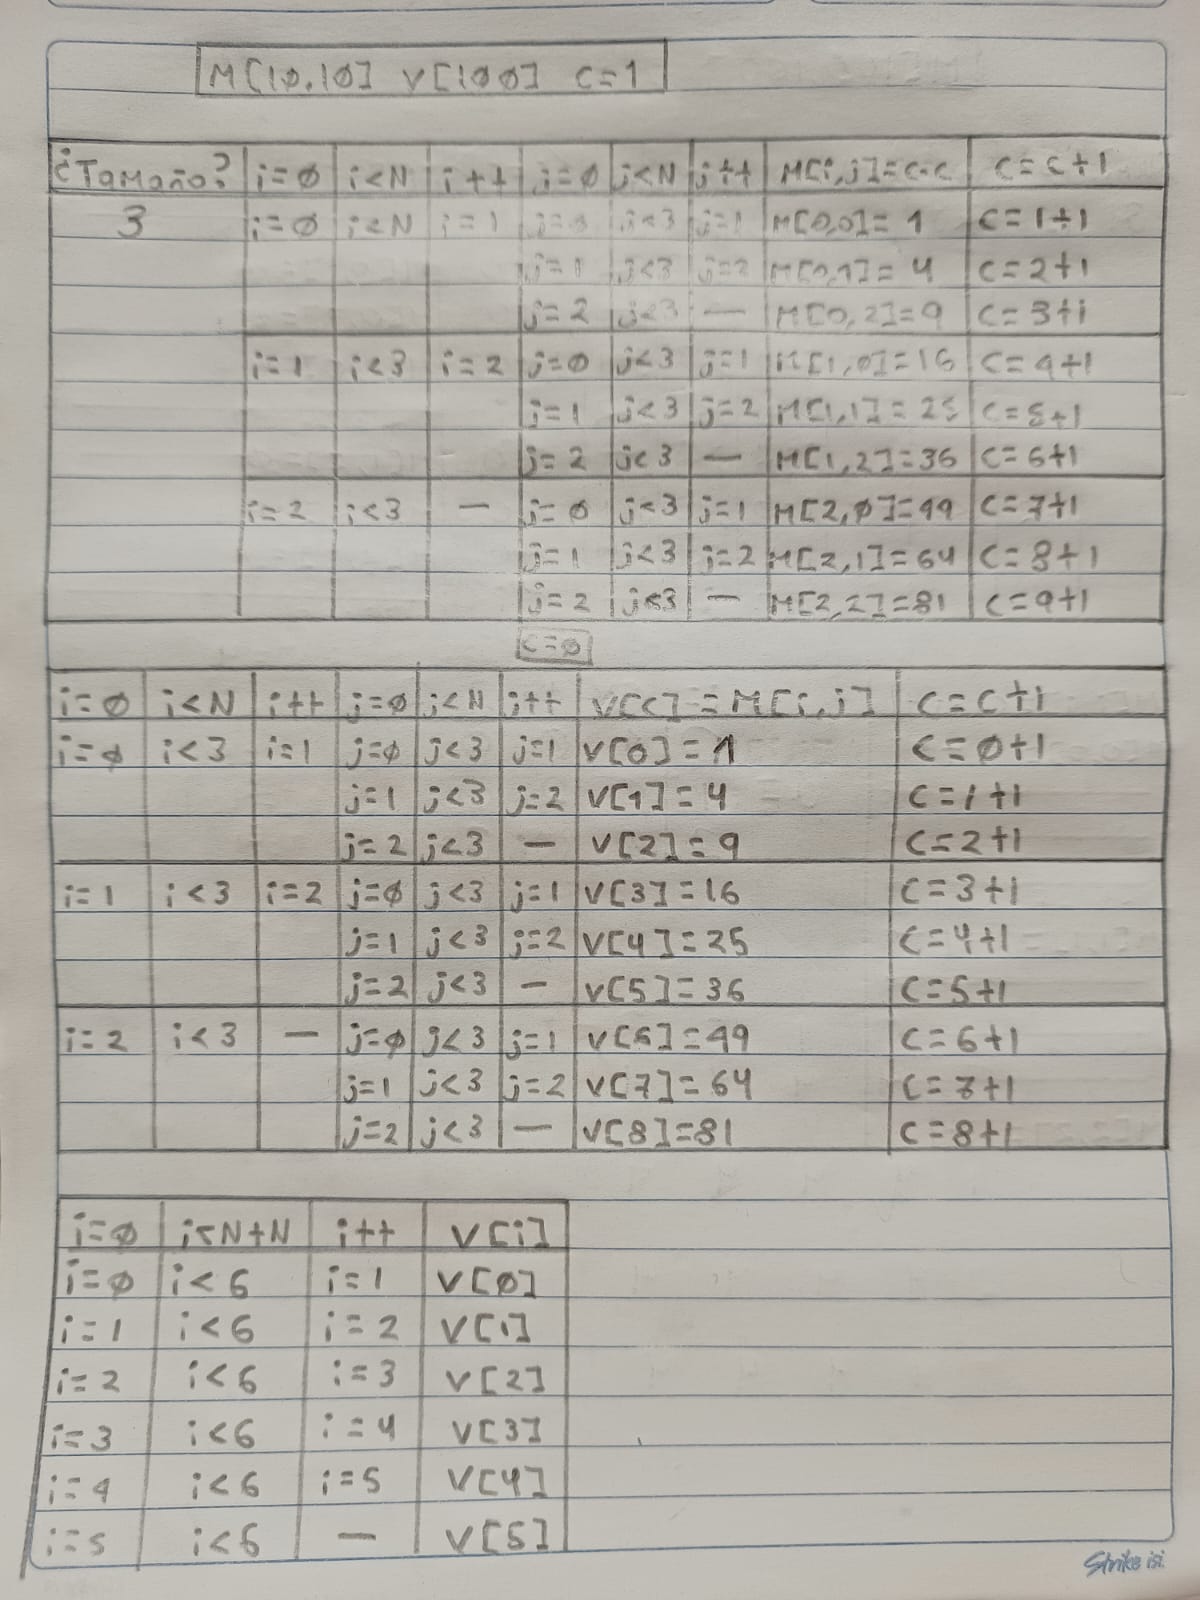 M[10,10] V[100] C=1
¿Tamaño? i=0 i<N i++ j=0 j<N j++ M[i,j]=c·c C=C+1
3 i=0 i<N i=1 j=0 j<3 j=1 M[0,0]=1 C=1+1
j=1 j<3 j=2 M[0,1]=4 C=2+1
j=2 j<3 — M[0,2]=9 C=3+1
i=1 i<3 i=2 j=0 j<3 j=1 M[1,0]=16 C=4+1
j=1 j<3 j=2 M[1,1]=25 C=5+1
j=2 j<3 — M[1,2]=36 C=6+1
i=2 i<3 — j=0 j<3 j=1 M[2,0]=49 C=7+1
j=1 j<3 j=2 M[2,1]=64 C=8+1
j=2 j<3 — M[2,2]=81 C=9+1
C=0
i=0 i<N i++ j=0 j<N j++ V[C]=M[i,j] C=C+1
i=0 i<3 i=1 j=0 j<3 j=1 V[0]=1 C=0+1
j=1 j<3 j=2 V[1]=4 C=1+1
j=2 j<3 — V[2]=9 C=2+1
i=1 i<3 i=2 j=0 j<3 j=1 V[3]=16 C=3+1
j=1 j<3 j=2 V[4]=25 C=4+1
j=2 j<3 — V[5]=36 C=5+1
i=2 i<3 — j=0 j<3 j=1 V[6]=49 C=6+1
j=1 j<3 j=2 V[7]=64 C=7+1
j=2 j<3 — V[8]=81 C=8+1
i=0 i<N+N i++ V[i]
i=0 i<6 i=1 V[0]
i=1 i<6 i=2 V[1]
i=2 i<6 i=3 V[2]
i=3 i<6 i=4 V[3]
i=4 i<6 i=5 V[4]
i=5 i<6 — V[5]
Strike isi.